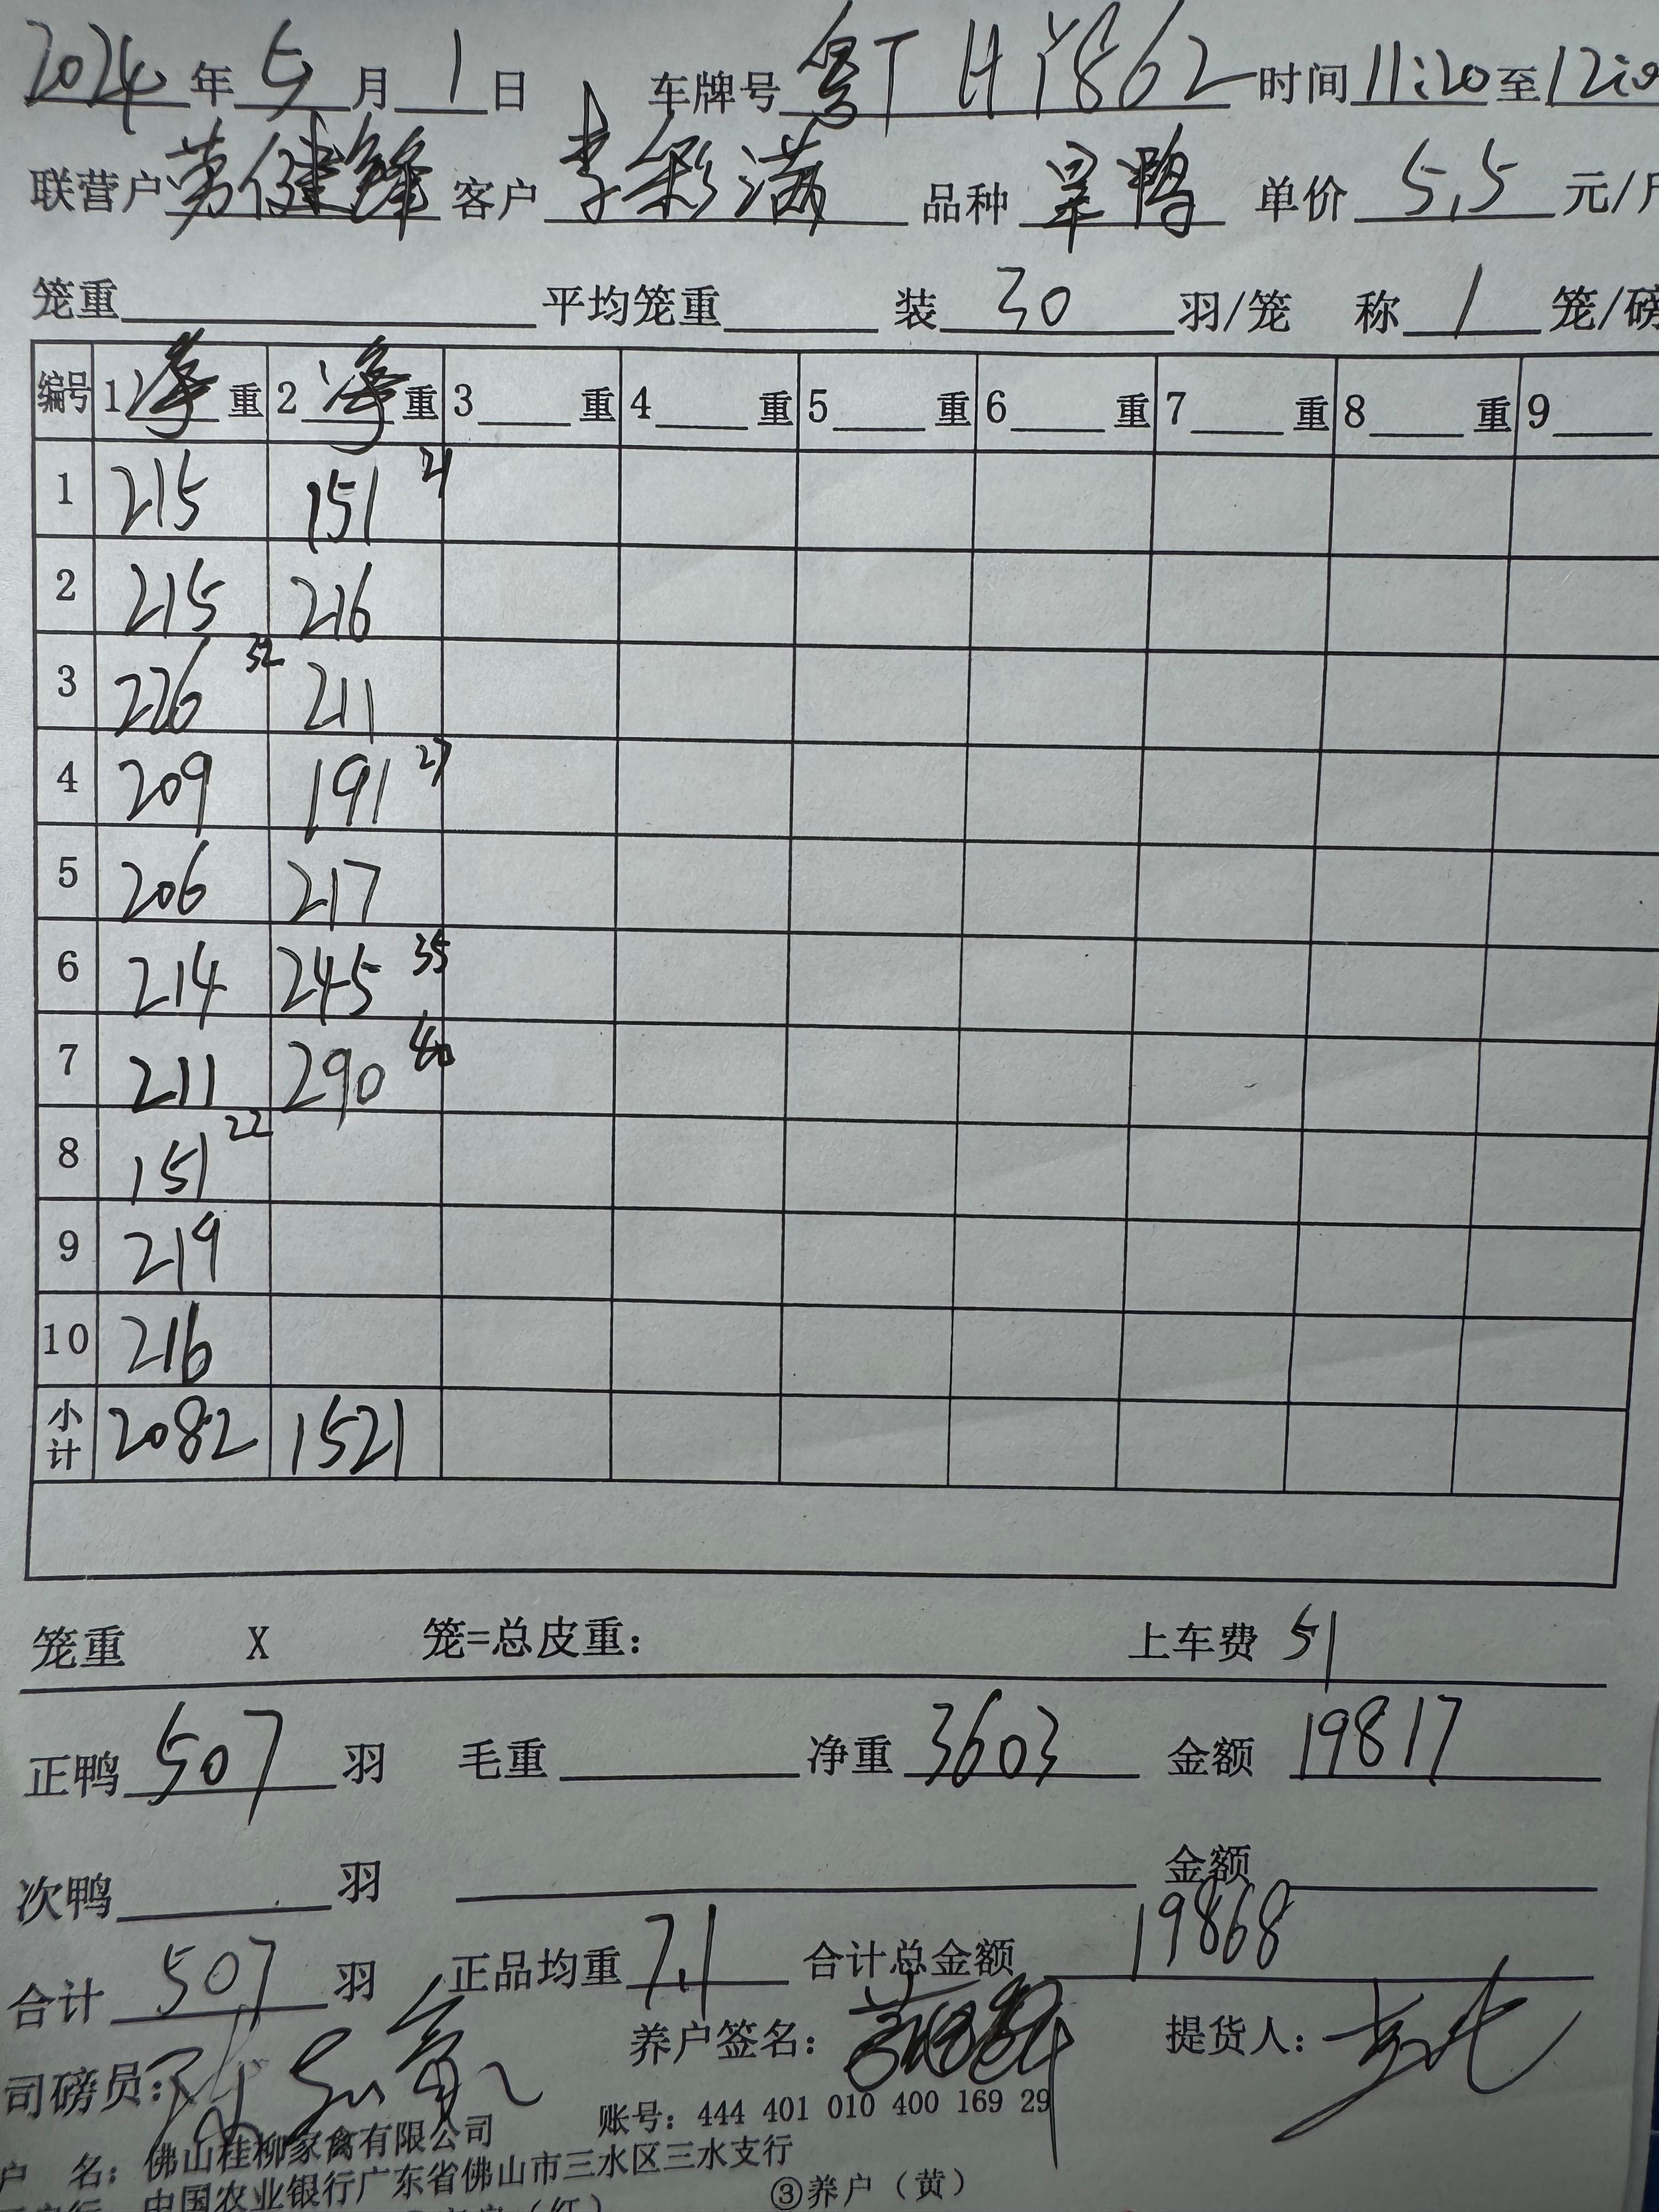 2024年5月1日 车牌号 粤T HY862 时间11:20至12:0
联营户 劳健锋 客户 李彩满 品种 旱鸭 单价 5.5 元/斤
笼重 平均笼重 装 30 羽/笼 称 1 笼/磅
编号 1 净 重 2 净 重 3 重 4 重 5 重 6 重 7 重 8 重 9
1 215 151 21
2 215 216
3 226 32 211
4 209 191 27
5 206 217
6 214 245 35
7 211 290 40
8 151 22
9 219
10 216
小计 2082 1521
笼重 X 笼=总皮重： 上车费 51
正鸭 507 羽 毛重 净重 3603 金额 19817
次鸭 羽 金额
合计 507 羽 正品均重 7.1 合计总金额 19868
司磅员： 养户签名： 提货人：
账号：444 401 010 400 169 29
户 名：佛山桂柳家禽有限公司
中国农业银行广东省佛山市三水区三水支行
③养户（黄）